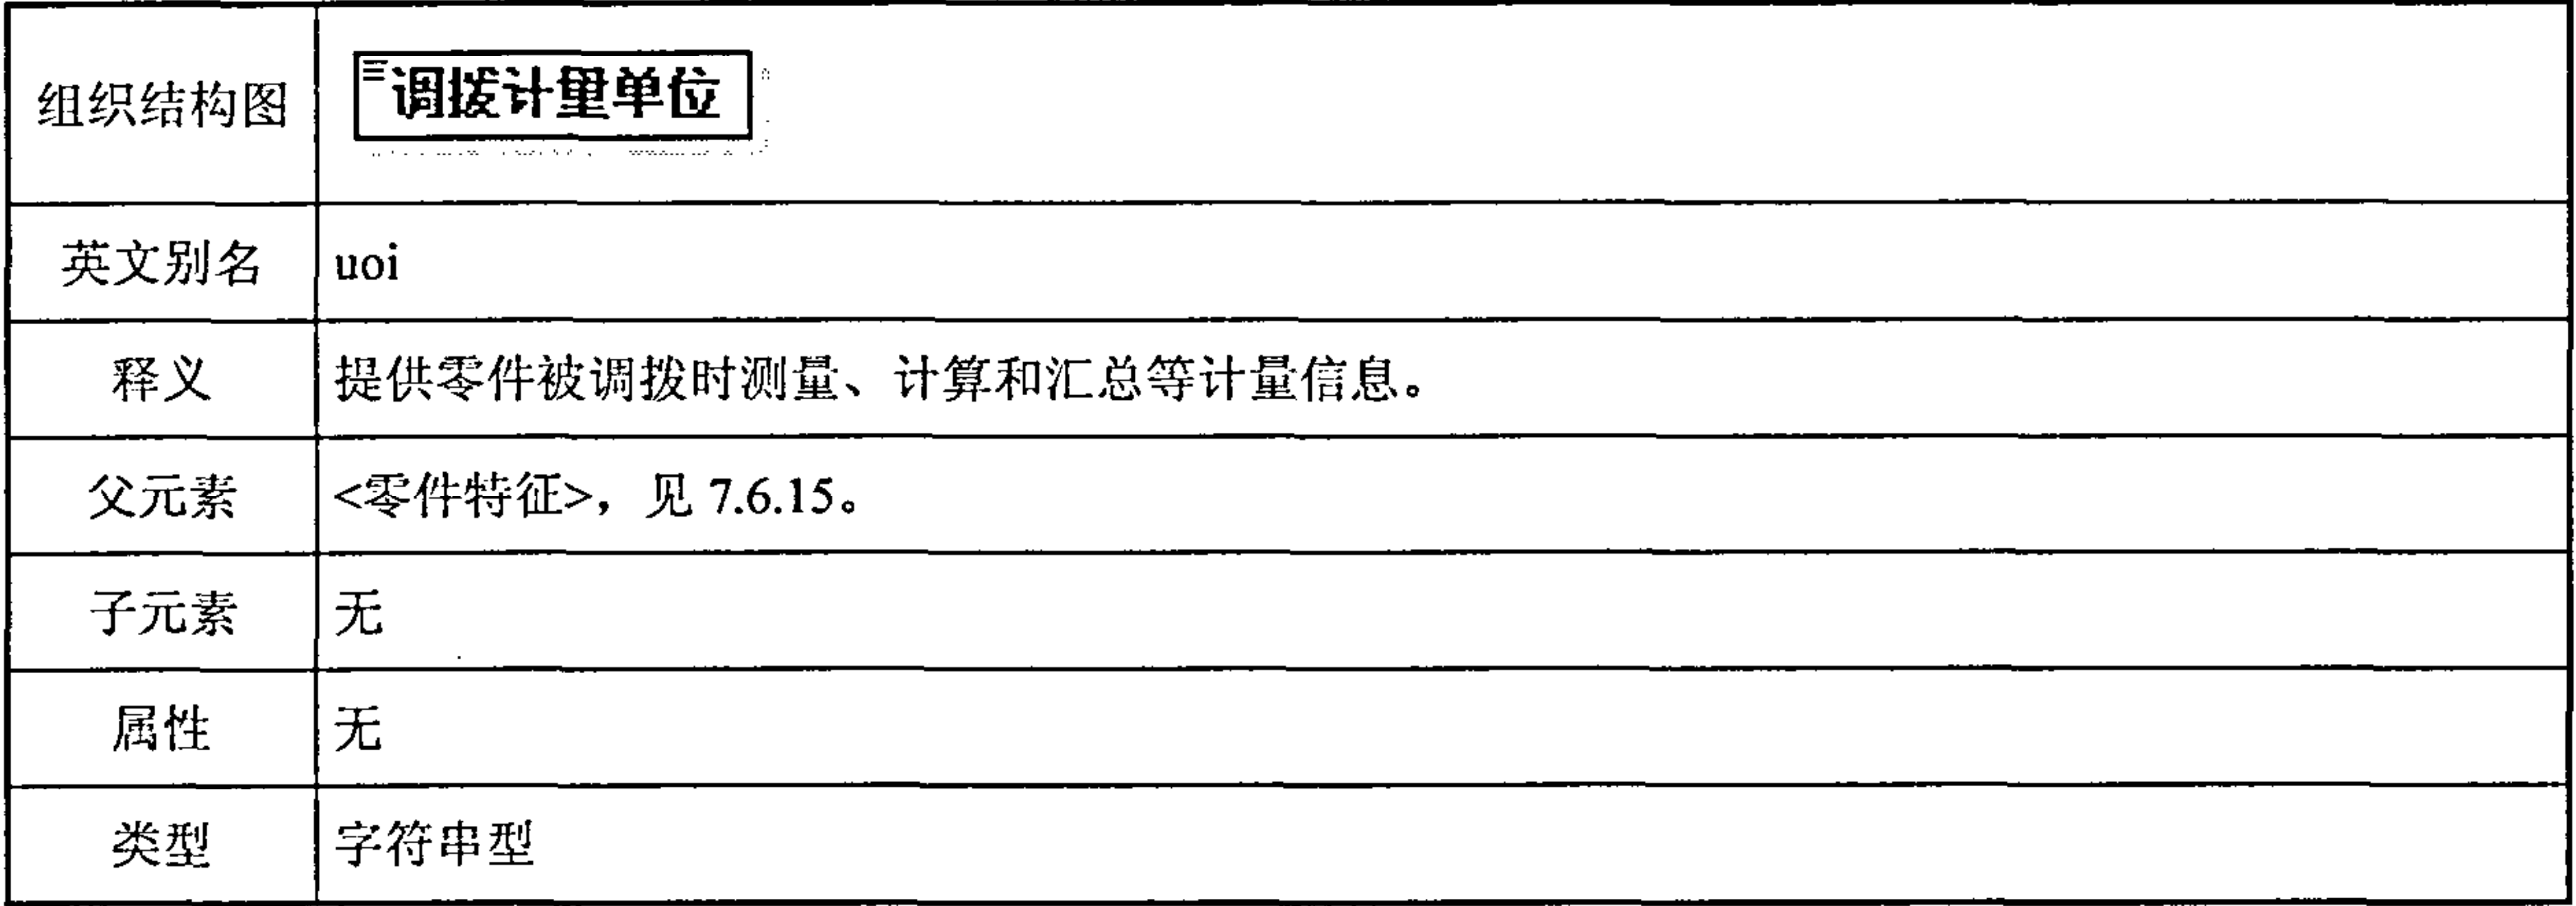 组织结构图 调拨计量单位
英文别名 uoi
释义 提供零件被调拨时测量、计算和汇总等计量信息。
父元素 <零件特征>，见 7.6.15。
子元素 无
属性 无
类型 字符串型